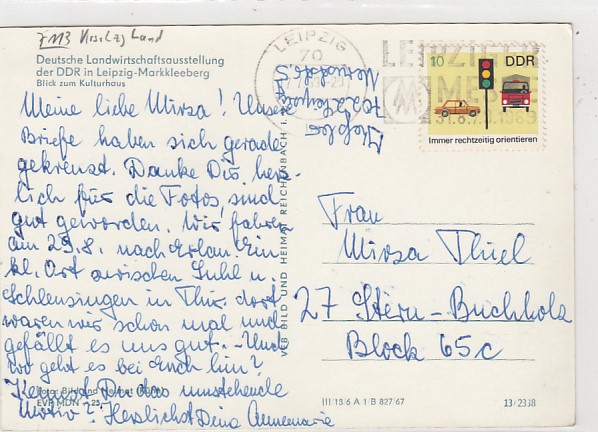 Deutsche Landwirtschaftsausstellung
der DDR in Leipzig-Markkleeberg
Blick zum Kulturhaus
Meine liebe Mirsa! Unsere
Briefe haben sich gerade
gekreuzt. Danke Dir herz-
lich für die Fotos, sind
gut geworden. Wir fahren
am 29.8. nach Erlau. Ein
kl. Ort zwischen Suhl u.
Schleusingen in Thür. dort
waren wir schon mal und
gefällt es uns gut. – Und
wo geht es bei Euch hin?
Kennst Du das umstehende
Motiv? Herzlichst Deine Annemarie
EVP MDN -,25
VEB BILD UND HEIMAT REICHENBACH
LEIPZIG
70
LEIPZIGER
MESSE
31.8.-7.9.1969
10
DDR
Immer rechtzeitig orientieren
7022 Leipzig
Frau
Mirsa Thiel
27 Stern-Buchholz
Block 65c
III/18/6 A 1 B 827/67
13/2338